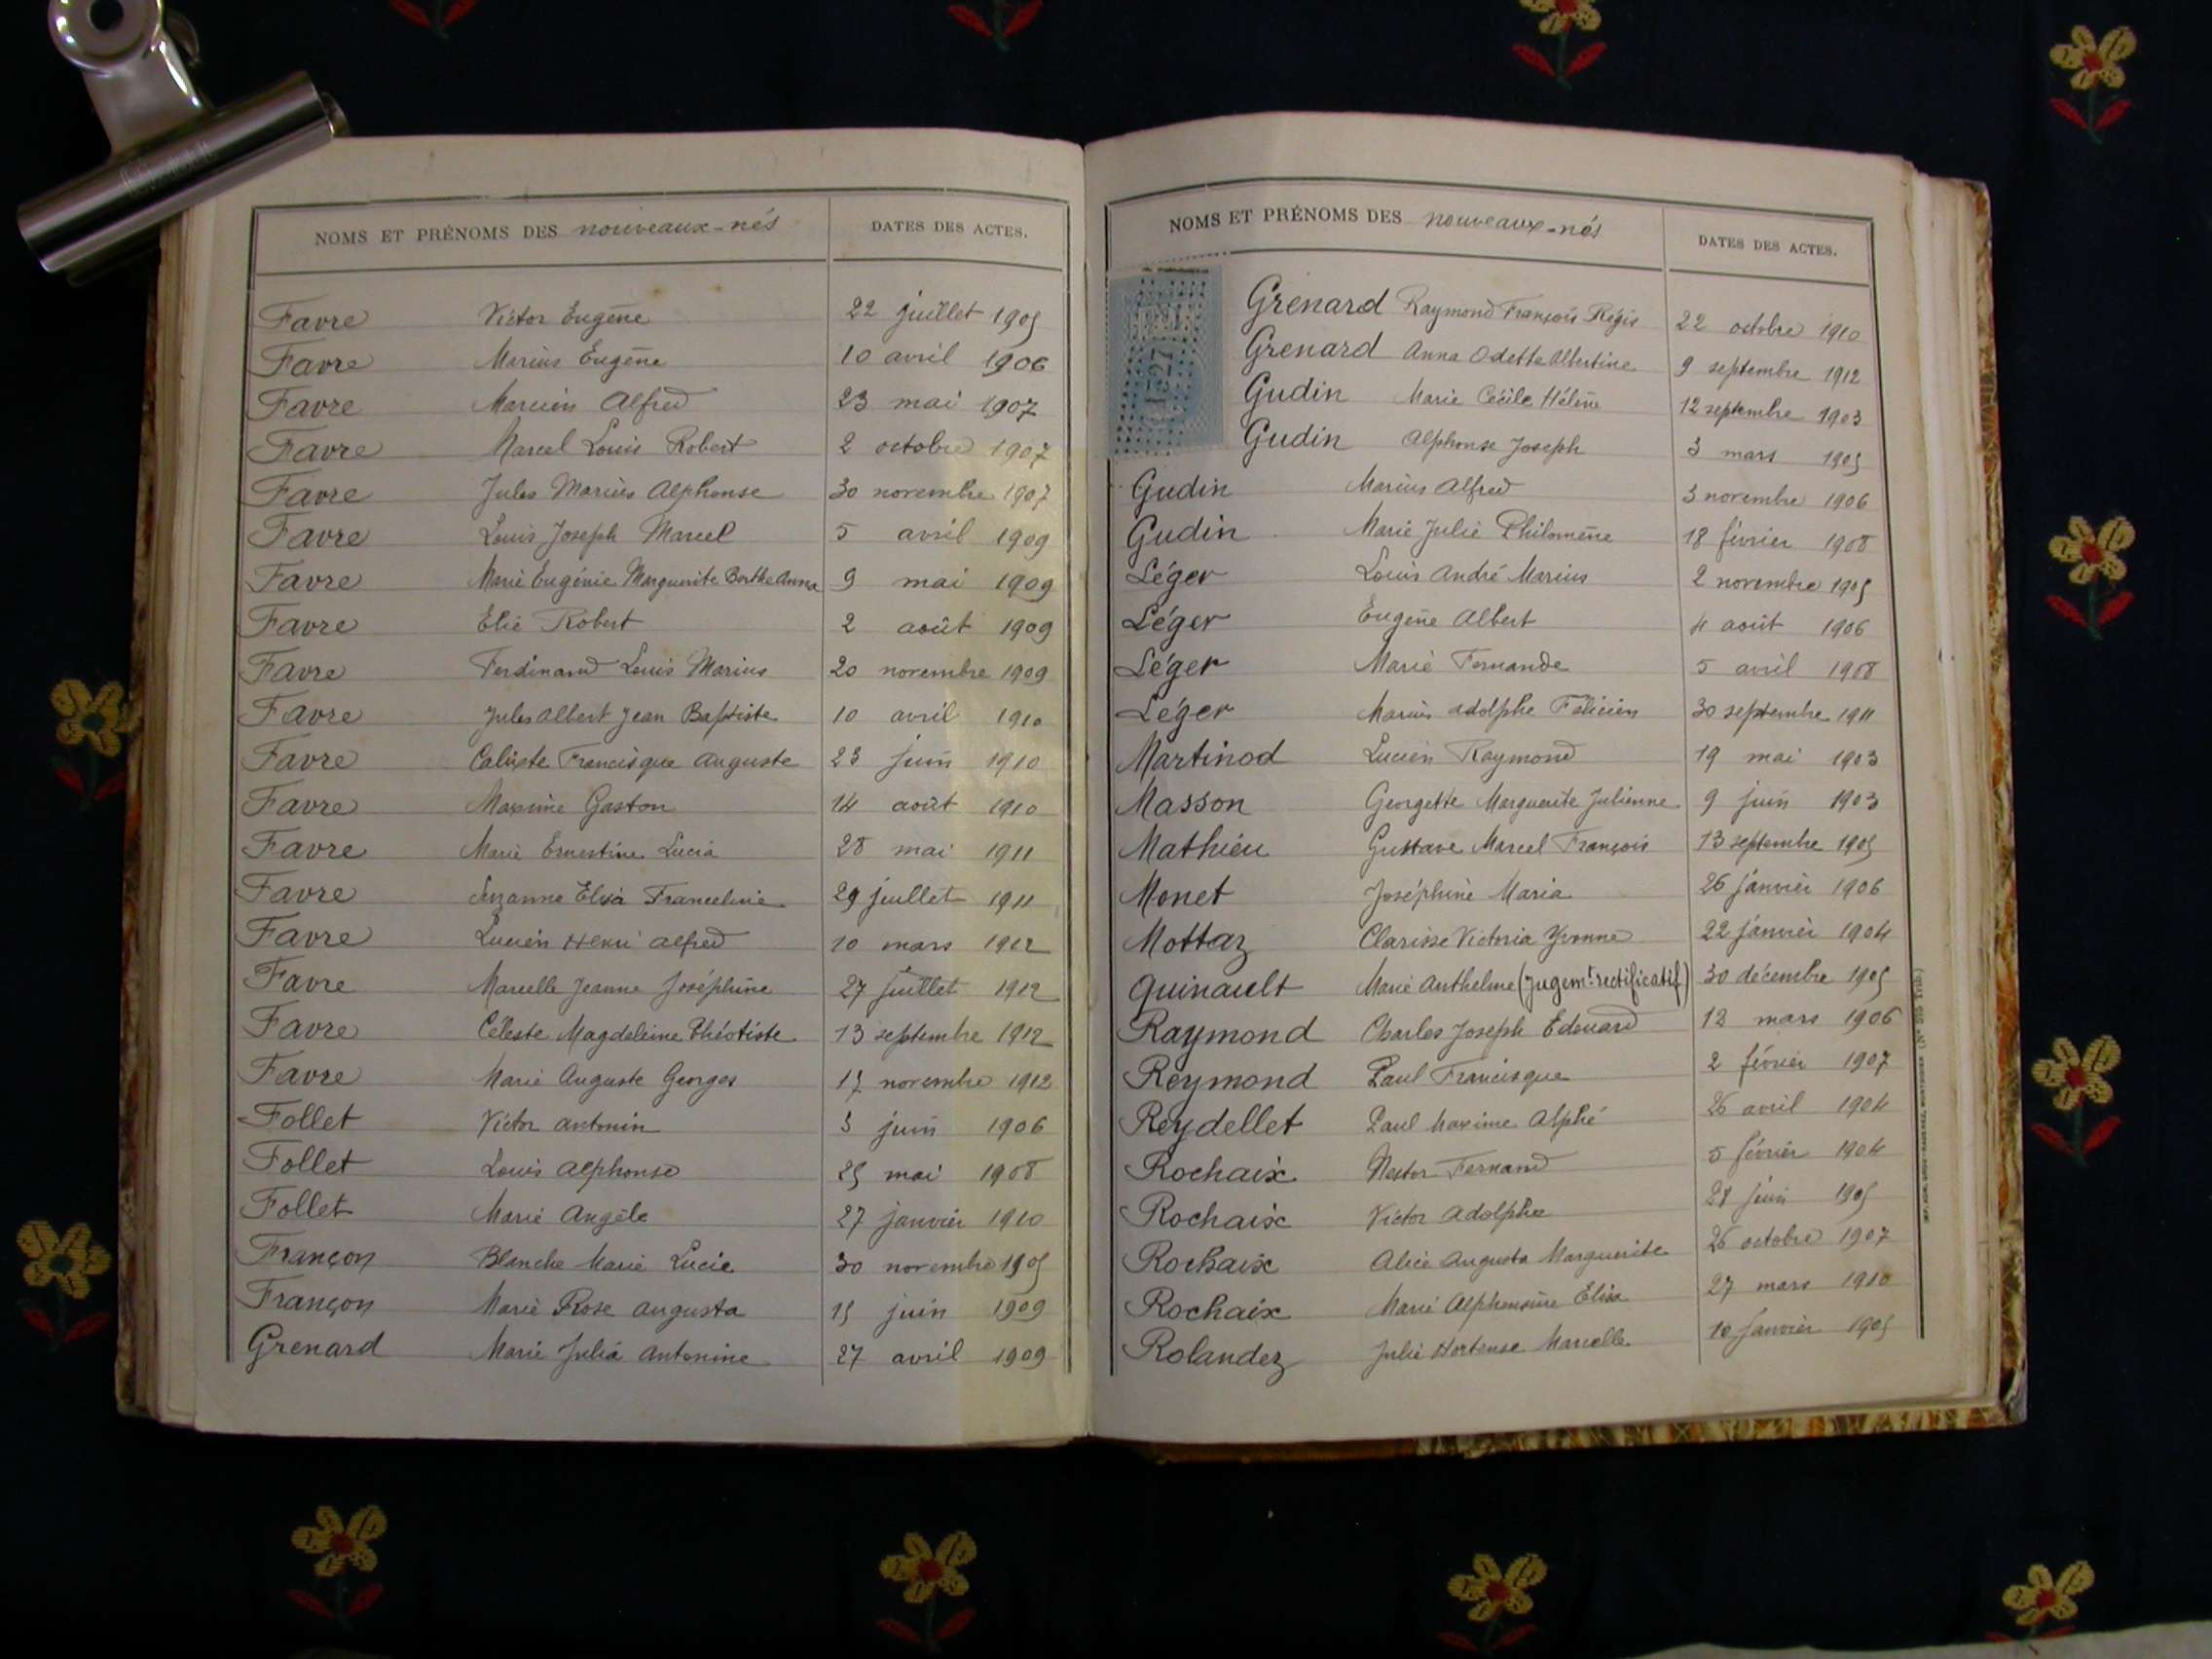 NOMS ET PRÉNOMS DES nouveaux-nés DATES DES ACTES.
Favre Victor Eugène 22 juillet 1905
Favre Marius Eugène 10 avril 1906
Favre Marcien Alfred 23 mai 1907
Favre Marcel Louis Robert 2 octobre 1907
Favre Jules Marius Alphonse 30 novembre 1907
Favre Louis Joseph Marcel 5 avril 1909
Favre Marie Eugénie Marguerite Berthe Anna 9 mai 1909
Favre Elie Robert 2 août 1909
Favre Ferdinand Louis Marius 20 novembre 1909
Favre Jules Albert Jean Baptiste 10 avril 1910
Favre Calixte Francisque Auguste 23 juin 1910
Favre Maxime Gaston 14 août 1910
Favre Marie Ernestine Lucia 28 mai 1911
Favre Suzanne Elisa Franceline 29 juillet 1911
Favre Lucien Henri Alfred 10 mars 1912
Favre Marcelle Jeanne Joséphine 27 juillet 1912
Favre Céleste Magdeleine Théotiste 13 septembre 1912
Favre Marie Auguste Georges 17 novembre 1912
Follet Victor Antonin 3 juin 1906
Follet Louis Alphonse 25 mai 1908
Follet Marie Angèle 27 janvier 1910
Françon Blanche Marie Lucie 30 novembre 1905
Françon Marie Rose Augusta 15 juin 1909
Grenard Marie Julia Antonine 27 avril 1909
NOMS ET PRÉNOMS DES nouveaux-nés DATES DES ACTES.
Grenard Raymond François Régis 22 octobre 1910
Grenard Anna Odette Albertine 9 septembre 1912
Gudin Marie Cécile Hélène 12 septembre 1903
Gudin Alphonse Joseph 3 mars 1905
Gudin Marius Alfred 3 novembre 1906
Gudin Marie Julie Philomène 18 février 1908
Léger Louis André Marius 2 novembre 1905
Léger Eugène Albert 4 août 1906
Léger Marie Fernande 5 avril 1908
Léger Marius Adolphe Félicien 30 septembre 1911
Martinod Lucien Raymond 19 mai 1903
Masson Georgette Marguerite Julienne 9 juin 1903
Mathieu Gustave Marcel François 13 septembre 1905
Monet Joséphine Maria 26 janvier 1906
Mottaz Clarisse Victoria Yvonne 22 janvier 1904
Quinault Marie Anthelme (Jugemt rectificatif) 30 décembre 1905
Raymond Charles Joseph Edouard 12 mars 1906
Reymond Paul Francisque 2 février 1907
Reydellet Paul Maxime Alphé 26 avril 1904
Rochaix Nestor Fernand 5 février 1904
Rochaix Victor Adolphe juin 1905
Rochaix Alice Augusta Marguerite 26 octobre 1907
Rochaix Marie Alphonsine Elisa 27 mars 1910
Rolandez Julie Hortense Marcelle 10 janvier 1905